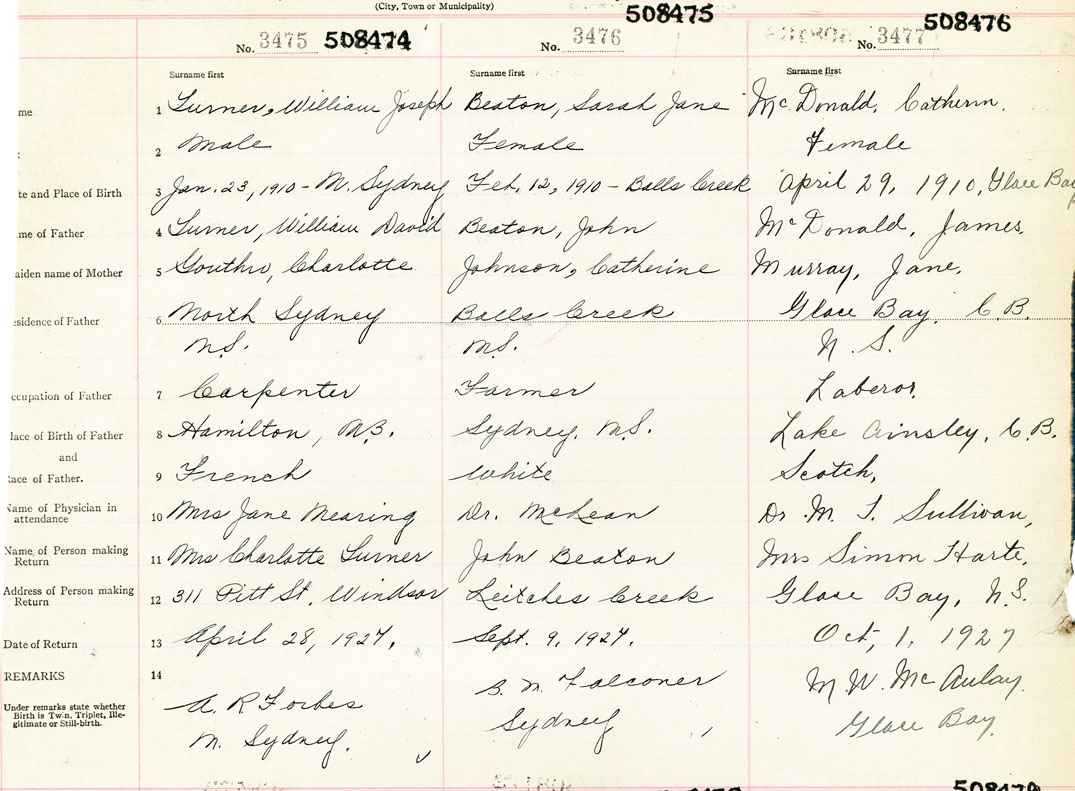 (City, Town or Municipality)
No. 3475 508474
Surname first
1 Turner, William Joseph
2 Male
3 Jan. 23, 1910 - N. Sydney
4 Turner, William David
5 Gouthro, Charlotte
6 North Sydney
N.S.
7 Carpenter
8 Hamilton, N.B.
9 French
10 Mrs Jane Nearing
11 Mrs Charlotte Turner
12 311 Pitt St. Windsor
13 April 28, 1927.
14
A. R Forbes
N. Sydney.
508475
No. 3476
Surname first
Beaton, Sarah Jane
Female
Feb. 12, 1910 - Balls Creek
Beaton, John
Johnson, Catherine
Balls Creek
N.S.
Farmer
Sydney. N.S.
White
Dr. McLean
John Beaton
Leitches Creek
Sept. 9, 1927.
B. N. Falconer
Sydney
508476
No. 3477
Surname first
McDonald, Catherin.
Female
April 29, 1910, Glace Bay
McDonald, James.
Murray, Jane.
Glace Bay. C.B.
N. S.
Laberor.
Lake Ainsley, C.B.
Scotch,
Dr. M. T. Sullivan,
Mrs Simon Harte.
Glase Bay, N.S.
Oct, 1, 1927
M. W. McAulay.
Glace Bay.
me
te and Place of Birth
me of Father
aiden name of Mother
esidence of Father
ccupation of Father
lace of Birth of Father
and
ace of Father.
Name of Physician in
attendance
Name of Person making
Return
Address of Person making
Return
Date of Return
REMARKS
Under remarks state whether
Birth is Twin, Triplet, Ille-
gitimate or Still-birth.